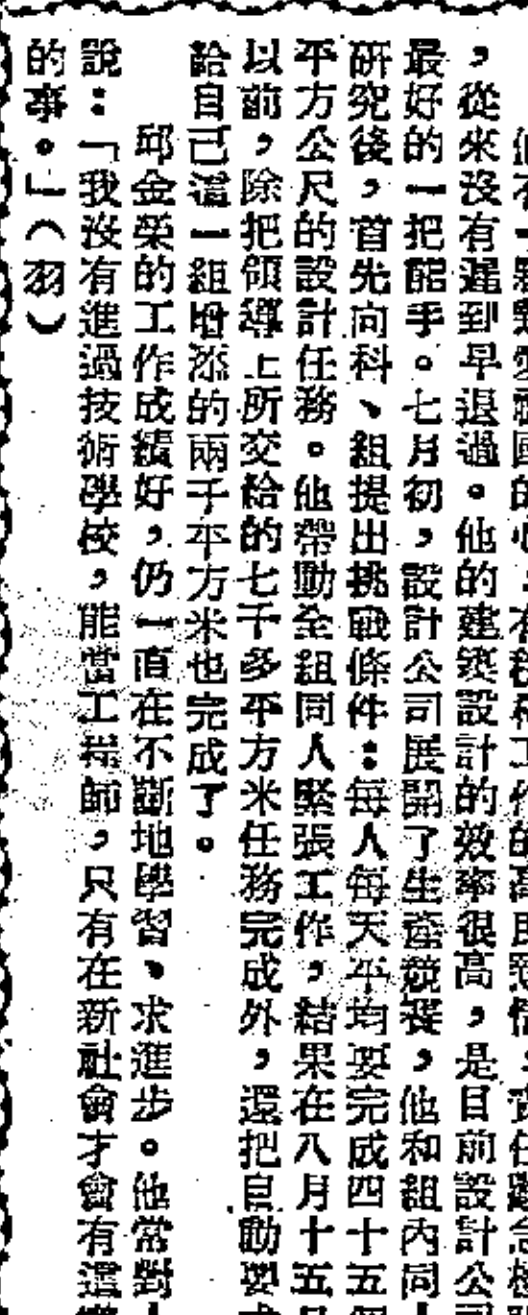 ,從來沒有遲到早退過。他的建築設計的效率很高,是目前設計公
最好的一把能手。七月初,設計公司展開了生產競賽,他和組內同
研究後,首先向科、組提出挑戰條件:每人每天平均要完成四十五
平方公尺的設計任務。他帶動全組同人緊張工作,結果在八月十五
以前,除把領導上所交給的七千多平方米任務完成外,還把自動要
給自己這一組增添的兩千平方米也完成了。
邱金榮的工作成績好,仍一直在不斷地學習、求進步。他常對
說:「我沒有進過技術學校,能當工程師,只有在新社會才會有這
的事。」(羽)